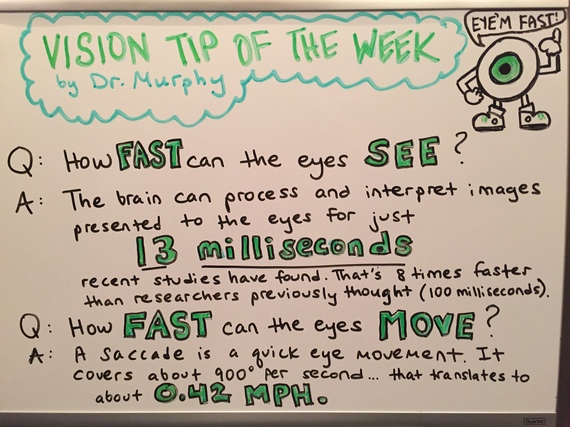 VISION TIP OF THE WEEK
by Dr. Murphy
EYE'M FAST!
Q: How FAST can the eyes SEE?
A: The brain can process and interpret images
presented to the eyes for just
13 milliseconds
recent studies have found. That's 8 times faster
than researchers previously thought (100 milliseconds).
Q: How FAST can the eyes MOVE?
A: A saccade is a quick eye movement. It
covers about 900° per second... that translates to
about 0.42 MPH.